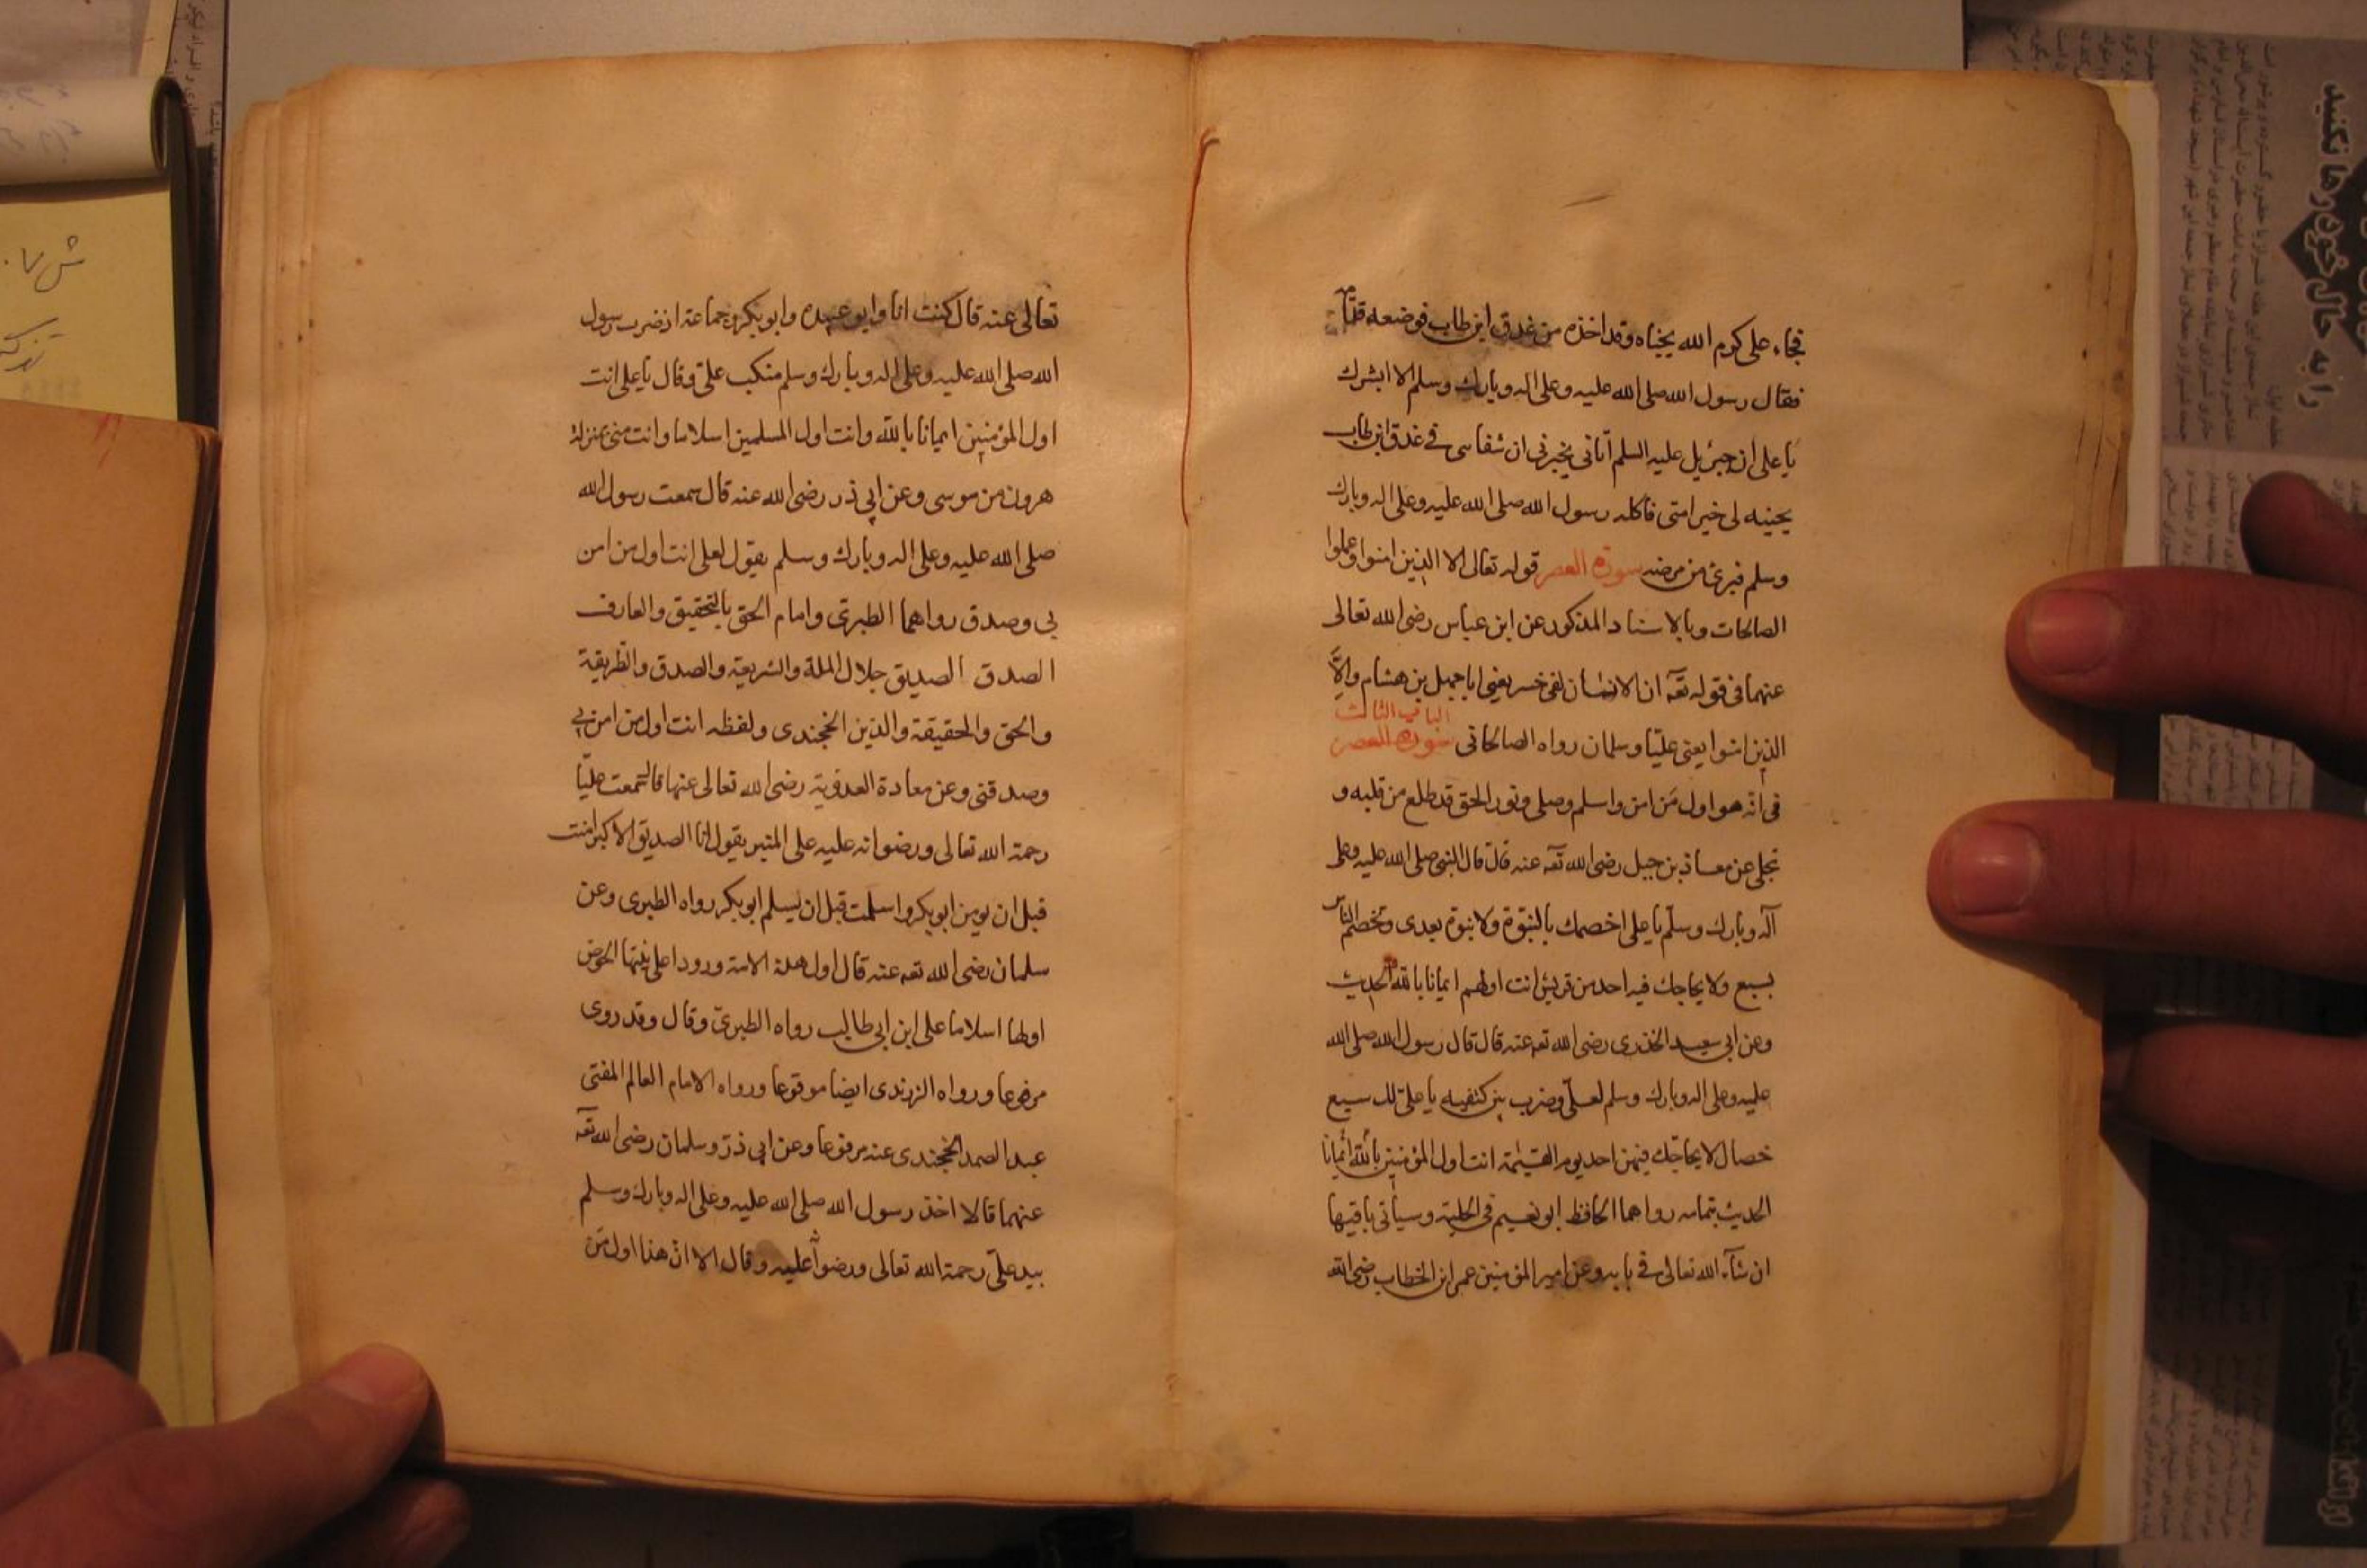 فجاء على كرم الله يجناه وقد اخذه من غدق ابن طاب فوضعه
فقال رسول الله صلى الله عليه وعلى اله وبارك وسلم الا ابشرك
يا على ان جبرئيل عليه السلم أتانى يخبرنى ان شفاءى فى غدق ابن طاب
يجنيه لى خير امتى فاكله رسول الله صلى الله عليه وعلى اله وبارك
وسلم فبرئ من مرضه سورة العصر قوله تعالى الا الذين امنوا وعملوا
الصالحات وبالاسناد المذكور عن ابن عباس رضى الله تعالى
عنهما فى قوله تعه ان الانسان لفى خسر يعنى ابا جهل بن هشام والا
الذين امنوا يعنى عليّا وسلمان رواه الصالحانى الباب الثالث سورة العصر
فى أنّه هو اول مَن امن واسلم وصلى ونور الحق قد طلع من قلبه و
تجلى عن معاذ بن جبل رضى الله تعه عنه قال قال النبى صلى الله عليه وعلى
آله وبارك وسلّم يا على اخصمك بالنبوّة ولا نبوة بعدى وتخصم الناس
بسبع ولا يحاجك فيه احد من قريش انت اولهم ايمانا بالله الحديث
وعن ابى سعيد الخدرى رضى الله تعه عنه قال قال رسول الله صلى الله
عليه وعلى اله وبارك وسلم لعلىّ وضرب بين كتفيه يا علىّ لك سبع
خصال لا يحاجّك فيهن احد يوم القيمة انت اول المؤمنين بالله أيمانا
الحديث بتمامه رواهما الحافظ ابو نعيم فى الحلية وسيأتى باقيها
ان شآء الله تعالى فى بابه وعن امير المؤمنين عمر ابن الخطاب رضى الله
تعالى عنه قال كنت انا وابو عبيده وابو بكر وجماعة اذ ضرب رسول
الله صلى الله عليه وعلى اله وبارك وسلم منكب علىّ وقال يا على انت
اول المؤمنين ايمانا بالله وانت اول المسلمين اسلاما وانت منى بمنزلة
هرون من موسى وعن ابى ذر رضى الله عنه قال سمعت رسول الله
صلى الله عليه وعلى اله وبارك وسلم يقول لعلى انت اول من امن
بى وصدق رواهما الطبرىّ وامام الحق بالتحقيق والعارف
الصدق الصديق جلال الملة والشريعة والصدق والطريقة
والحق والحقيقة والدّين الخجندى ولفظه انت اول من امن بى
وصدقنى وعن معادة العدوية رضى الله تعالى عنها قالت سمعت عليّا
رحمة الله تعالى ورضوانه عليه على المنبر يقول انا الصديق الاكبر امنت
قبل ان يومن ابو بكر واسلمت قبل ان يسلم ابو بكر رواه الطبرى وعن
سلمان رضى الله تعه عنه قال اول هذه الامة ورودا على نبيّها الحوض
اولها اسلاما على ابن ابى طالب رواه الطبرىّ وقال وقد روى
مرفوعا ورواه الزرندى ايضا موقوعا ورواه الامام العالم المفتى
عبد الصمد الخجندى عنه مرفوعا وعن ابى ذرّ وسلمان رضى الله تعه
عنهما قالا اخذ رسول الله صلى الله عليه وعلى اله وبارك وسلم
بيد علىّ رحمة الله تعالى ورضوانه عليه وقال الا انّ هذا اول مَن